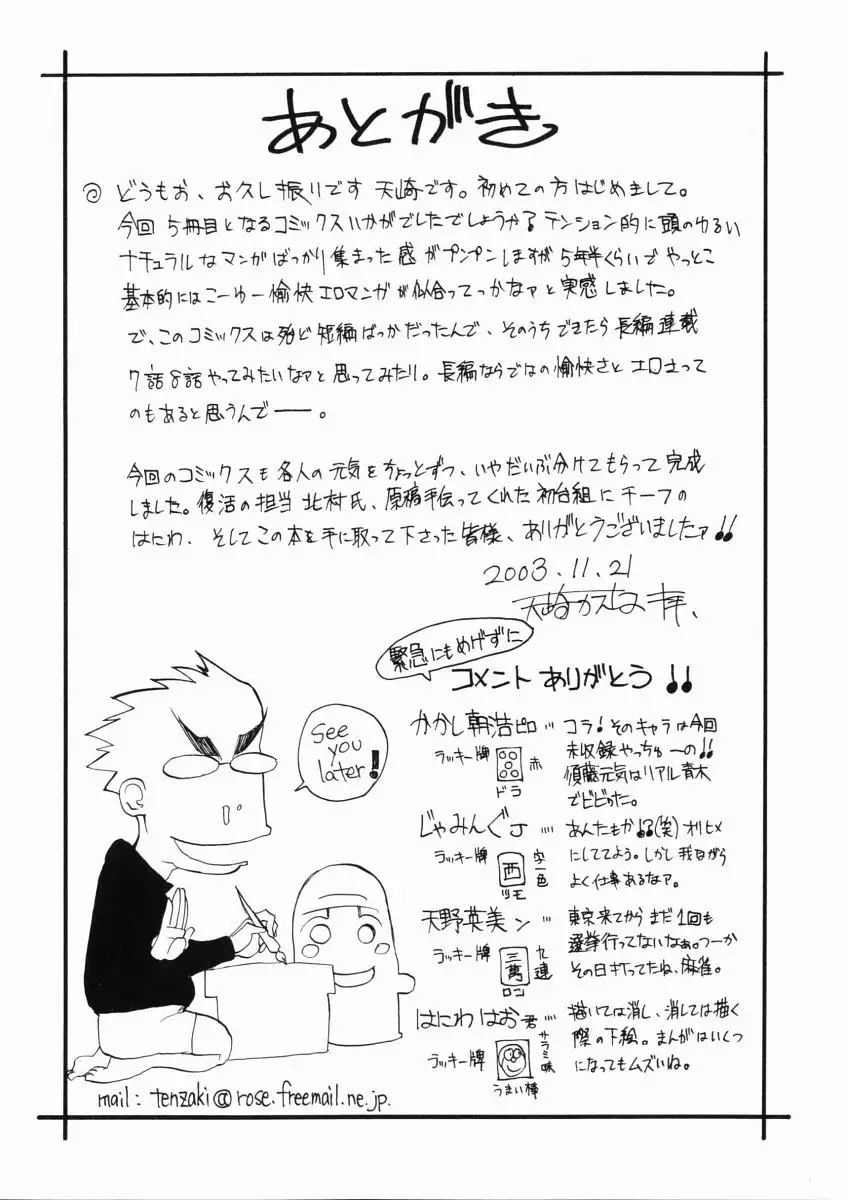 あとがき
どうもお、お久し振りです 天崎です。初めての方はじめまして。
今回 5冊目となるコミックスいかがでしたでしょうか? テンション的に頭のゆるい
ナチュラルなマンガばっかり集まった感がプンプンしますが 5年半くらいで やっとこ
基本的にはこーゆー愉快エロマンガが似合ってっかなァと実感しました。
で、このコミックスは殆ど短編ばっかだったんで、そのうちできたら長編連載
7話8話やってみたいなァと思ってみたり。長編ならではの愉快さと エロさって
のもあると思うんでー。
今回のコミックスも各人の元気をちょっとずつ、いやだいぶ分けてもらって完成
しました。復活の担当 北村氏、原稿手伝ってくれた初台組に チーフの
はにわ、そしてこの本を手に取って下さった皆様、ありがとうございましたァ!!
2003.11.21
天崎かんな 拝、
緊急にもめげずに
コメント ありがとう!!
かかし朝浩ピロ…
ラッキー牌
赤
ドラ
コラ!そのキャラは今回
未収録やっちゅーの!!
須藤元気はリアル青木
でビビった。
じゃみんぐJ…
ラッキー牌
西
字一色
ツモ
あんたもか!?(笑) オリヒメ
にしててよう。しかし我ながら
よく仕事あるなァ。
天野英美ン…
ラッキー牌
三萬
九連
ロン
東京来てから まだ1回も
選挙行ってないなぁ。つーか
その日打ってたね、麻雀。
はにわはお君…
ラッキー牌
サラミ味
うまい棒
描いては消し、消しては描く
際の下絵。まんがはいくつ
になってもムズいね。
See
you
later!
mail: tenzaki@rose.freemail.ne.jp.